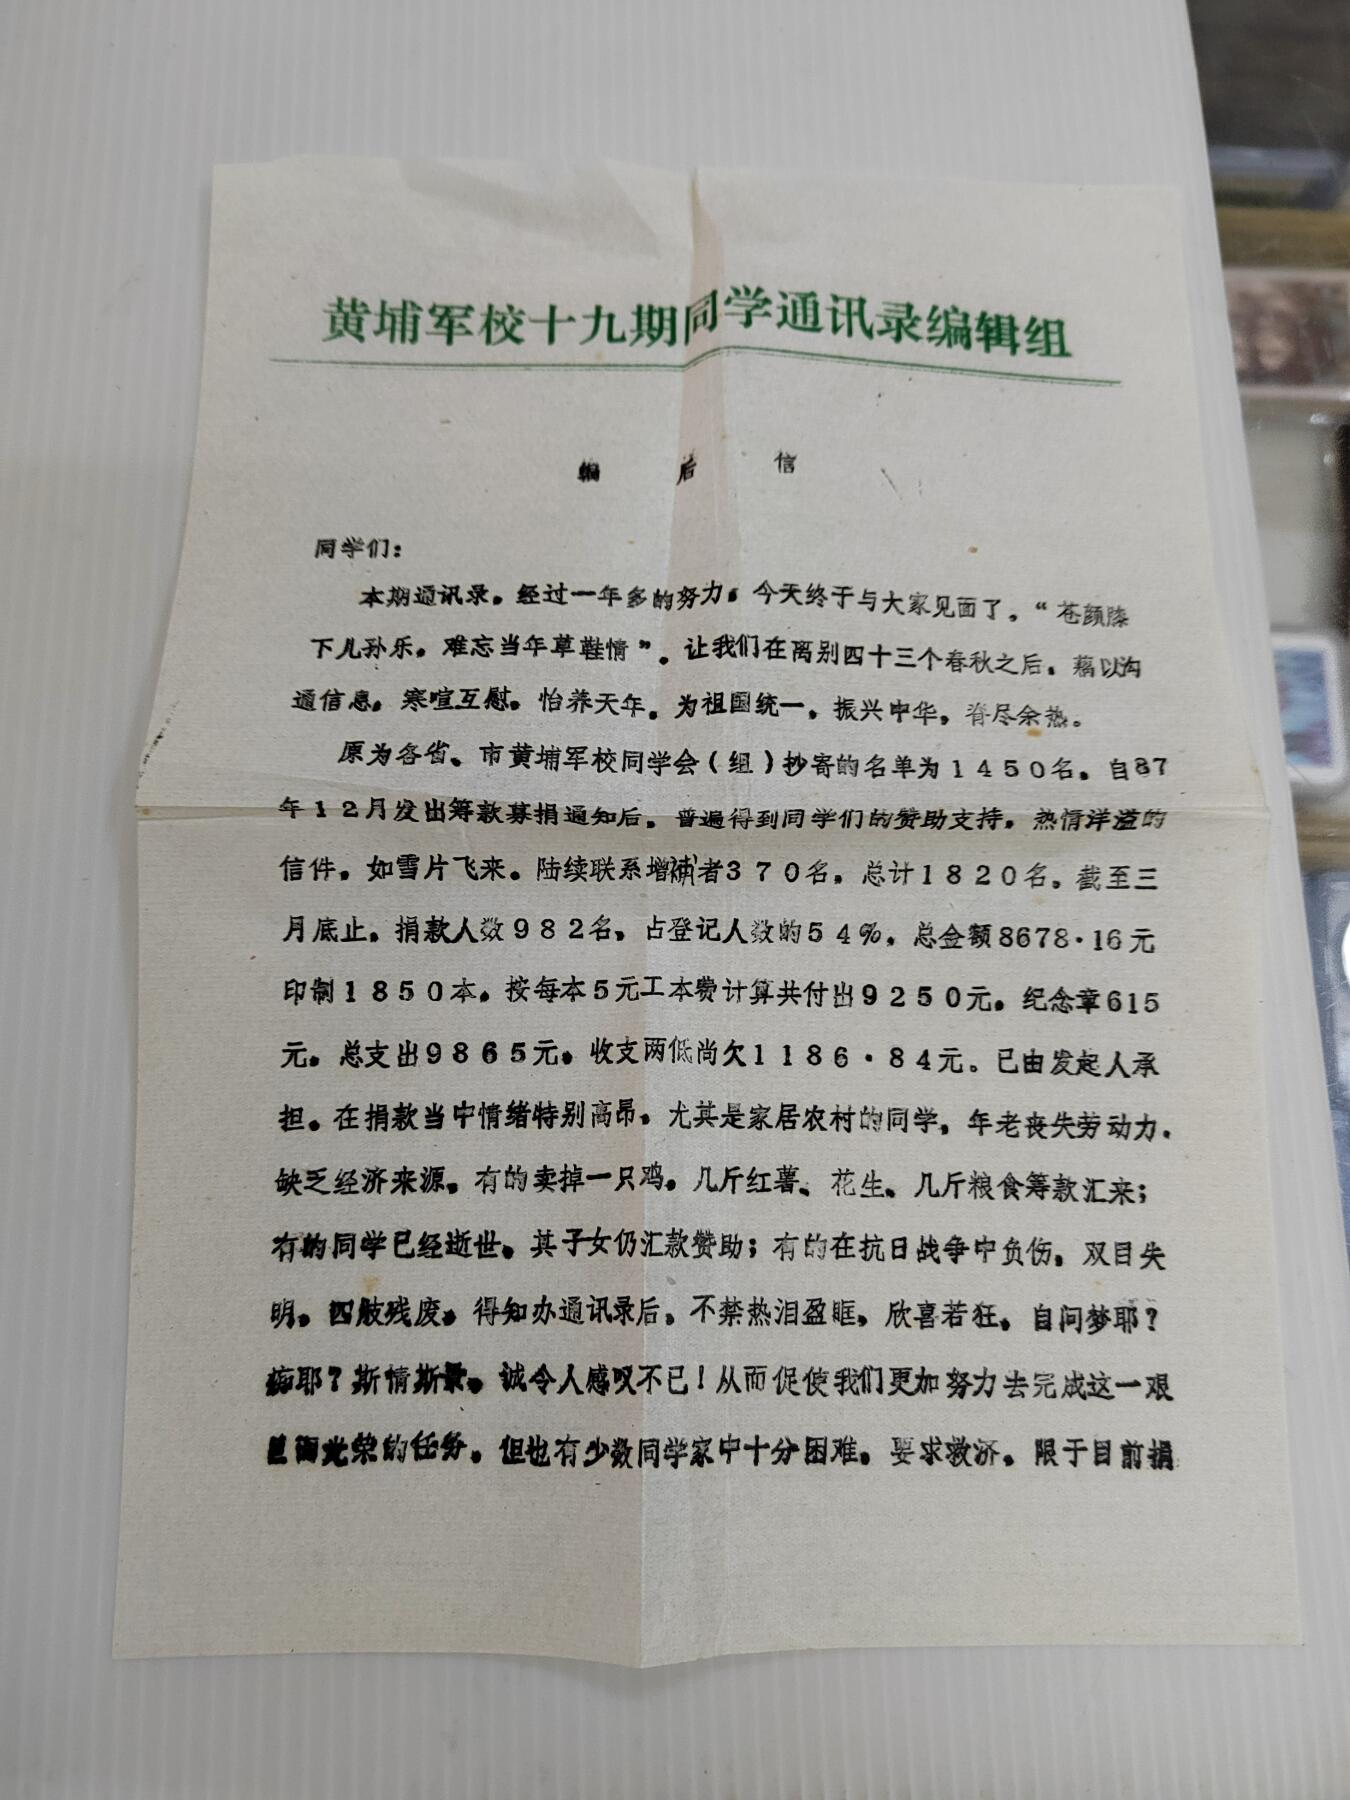 黄埔军校十九期同学通讯录编辑组
编后信
同学们：
本期通讯录，经过一年多的努力，今天终于与大家见面了。“苍颜膝
下儿孙乐，难忘当年草鞋情”。让我们在离别四十三个春秋之后，藉以沟
通信息，寒喧互慰，怡养天年，为祖国统一，振兴中华，脊尽余热。
原为各省、市黄埔军校同学会（组）抄寄的名单为1450名，自87
年12月发出筹款募捐通知后，普遍得到同学们的赞助支持，热情洋溢的
信件，如雪片飞来。陆续联系增补者370名，总计1820名，截至三
月底止，捐款人数982名，占登记人数的54%，总金额8678·16元
印制1850本，按每本5元工本费计算共付出9250元，纪念章615
元，总支出9865元，收支两低尚欠1186·84元。已由发起人承
担。在捐款当中情绪特别高昂，尤其是家居农村的同学，年老丧失劳动力，
缺乏经济来源，有的卖掉一只鸡，几斤红薯、花生、几斤粮食筹款汇来；
有的同学已经逝世，其子女仍汇款赞助；有的在抗日战争中负伤，双目失
明，四肢残废，得知办通讯录后，不禁热泪盈眶，欣喜若狂，自问梦耶？
痴耶？斯情斯景，诚令人感叹不已！从而促使我们更加努力去完成这一艰
巨而光荣的任务。但也有少数同学家中十分困难，要求救济，限于目前捐